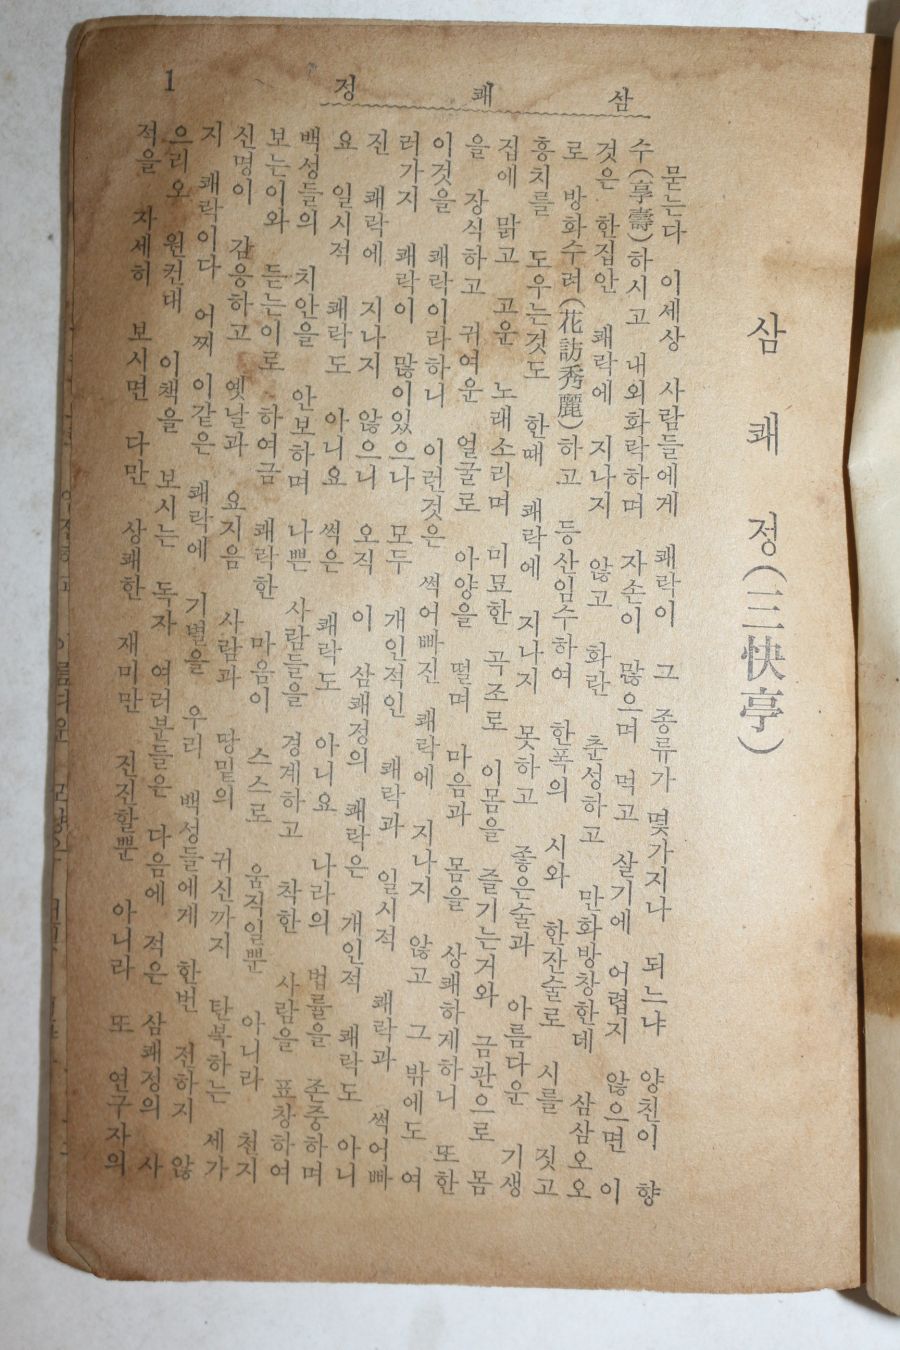 삼쾌정
1
삼쾌정(三快亭)
묻는다 이세상 사람들에게 쾌락이 그 종류가 몇가지나 되느냐 양친이 향
수(享壽)하시고 내외화락하며 자손이 많으며 먹고 살기에 어렵지 않으면 이
것은 한집안 쾌락에 지나지 않고 화란 춘성하고 만화방창한데 삼삼오오
로 방화수려(花訪秀麗)하고 등산임수하여 한폭의 시와 한잔술로 시를 짓고
흥치를 도우는것도 한때 쾌락에 지나지 못하고 좋은술과 아름다운 기생
집에 맑고 고운 노래소리며 미묘한 곡조로 이몸을 즐기는거와 금관으로 몸
을 장식하고 귀여운 얼굴로 아양을 떨며 마음과 몸을 상쾌하게하니 또한
이것을 쾌락이라하니 이런것은 썩어빠진 쾌락에 지나지 않고 그 밖에도 여
러가지 쾌락이 많이있으나 모두 개인적인 쾌락과 일시적 쾌락과 썩어빠
진 쾌락에 지나지 않으니 오직 이 삼쾌정의 쾌락은 개인적 쾌락도 아니
요 일시적 쾌락도 아니요 썩은 쾌락도 아니요 나라의 법률을 존중하며
백성들의 치안을 안보하며 나쁜 사람들을 경계하고 착한 사람을 표창하여
보는이와 듣는이로 하여금 쾌락한 마음이 스스로 움직일뿐 아니라 천지
신명이 감응하고 옛날과 요지음 사람과 땅밑의 귀신까지 탄복하는 세가
지 쾌락이다 어찌 이같은 쾌락에 기별을 우리 백성들에게 한번 전하지 않
으리오 원컨대 이책을 보시는 독자 여러분들은 다음에 적은 삼쾌정의 사
적을 자세히 보시면 다만 상쾌한 재미만 진진할뿐 아니라 또 연구자의